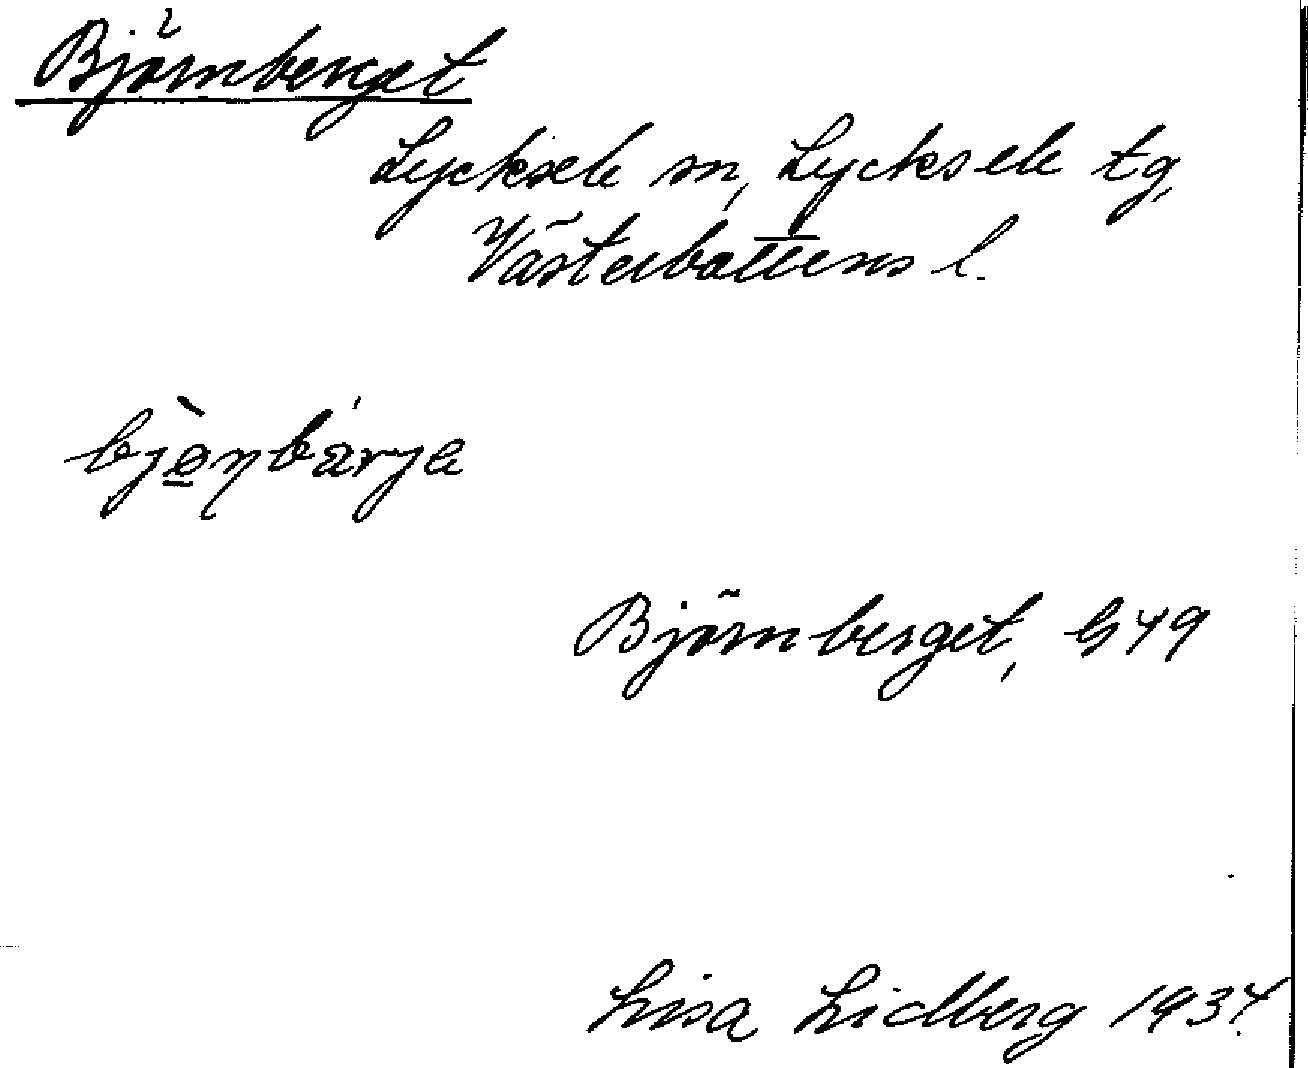 Björnberget
Lycksele sn, Lycksele tg,
Västerbottens l.
bjø̠̀ɳbárja
Björnberget, G49
Lisa Lidberg 1934.